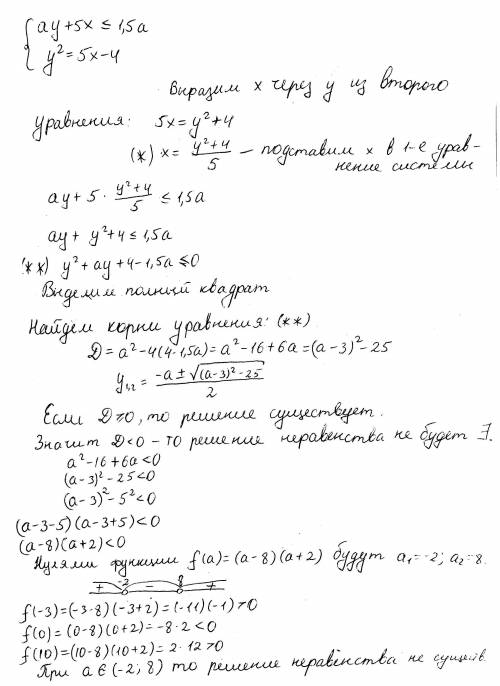 { ay + 5x ≤ 1,5a
y² = 5x-4
Выразим x через y из второго
уравнения: 5x = y²+4
(*) x = (y²+4)/5 – подставим x в 1-е урав-
нение системы
ay + 5 · (y²+4)/5 ≤ 1,5a
ay + y²+4 ≤ 1,5a
(**) y² + ay + 4 - 1,5a ≤ 0
Выделим полный квадрат
Найдем корни уравнения: (**)
D = a² - 4(4-1,5a) = a² - 16 + 6a = (a-3)² - 25
y₁,₂ = (-a ± √((a-3)² - 25))/2
Если D ≥ 0, то решение существует.
Значит D < 0 – то решение неравенства не будет ∃.
a² - 16 + 6a < 0
(a-3)² - 25 < 0
(a-3)² - 5² < 0
(a-3-5)(a-3+5) < 0
(a-8)(a+2) < 0
Нулями функции f(a) = (a-8)(a+2) будут a₁ = -2; a₂ = 8.
+ -2 - 8 +
f(-3) = (-3-8)(-3+2) = (-11)(-1) > 0
f(0) = (0-8)(0+2) = -8·2 < 0
f(10) = (10-8)(10+2) = 2·12 > 0
При a ∈ (-2; 8) то решение неравенства не сущест.